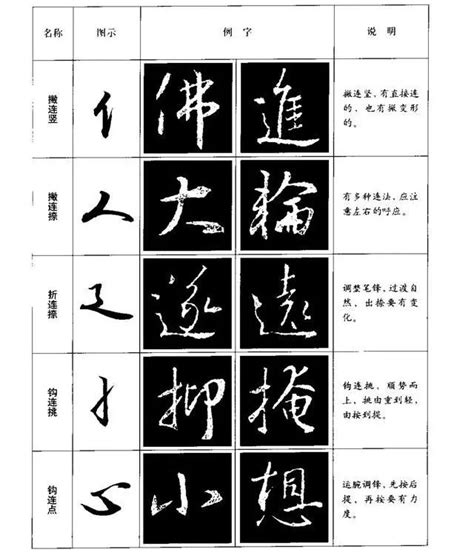 名称 图示 例字 说明
撇连竖 佛 進 撇连竖,有直接连
的,也有撇变形
的。
撇连捺 大 輪 有多种连法,应注
意左右的呼应。
折连捺 遂 遠 调整笔锋,过渡自
然,出捺要有变
化。
钩连挑 抑 掩 钩连挑,顺势而
上,挑由重到轻,
由按到提。
钩连点 心 小 想 运腕调锋,先按后
提,再按要有力
度。